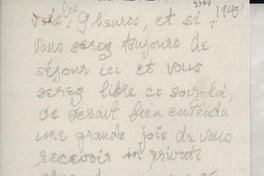 vers les 9 heures, et si
1945
vous serez toujours de
séjour ici et vous
serez libre ce soir-là,
ce serait bien entendu
une grande joie de vous
recevoir in private